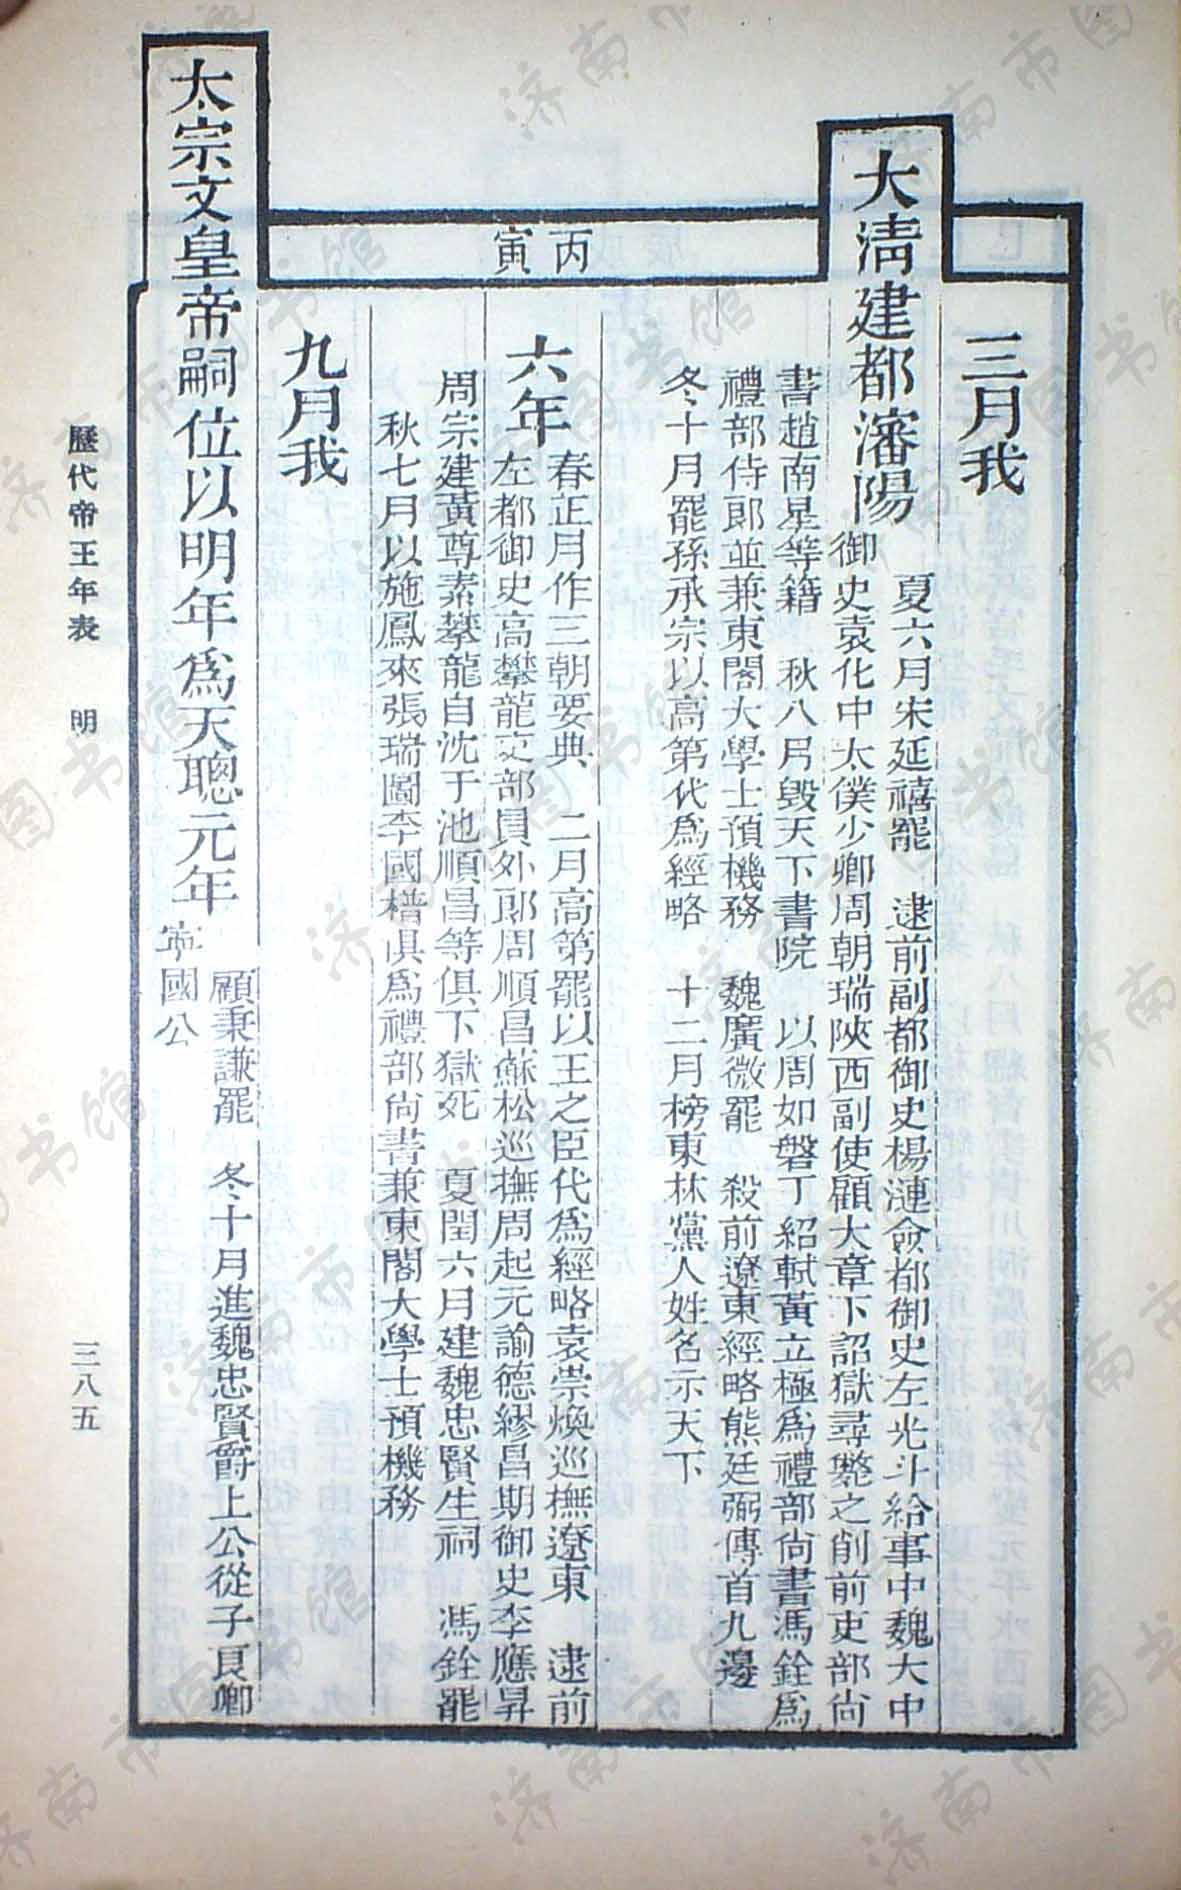 三月我
大淸建都瀋陽
夏六月朱延禧罷　逮前副都御史楊漣僉都御史左光斗給事中魏大中
御史袁化中太僕少卿周朝瑞陝西副使顧大章下詔獄尋斃之削前吏部尙
書趙南星等籍　秋八月毁天下書院　以周如磐丁紹軾黃立極爲禮部尙書馮銓爲
禮部侍郎並兼東閣大學士預機務　魏廣微罷　殺前遼東經略熊廷弼傳首九邊
冬十月罷孫承宗以高第代爲經略　十二月榜東林黨人姓名示天下
丙寅
六年
春正月作三朝要典　二月高第罷以王之臣代爲經略袁崇煥巡撫遼東　逮前
左都御史高攀龍吏部員外郎周順昌蘇松巡撫周起元諭德繆昌期御史李應昇
周宗建黃尊素攀龍自沈于池順昌等俱下獄死　夏閏六月建魏忠賢生祠　馮銓罷
秋七月以施鳳來張瑞圖李國𣚴俱爲禮部尙書兼東閣大學士預機務
九月我
太宗文皇帝嗣位以明年爲天聰元年
顧秉謙罷　冬十月進魏忠賢爵上公從子良卿
寧國公
歷代帝王年表　明
三八五
济南市图书馆